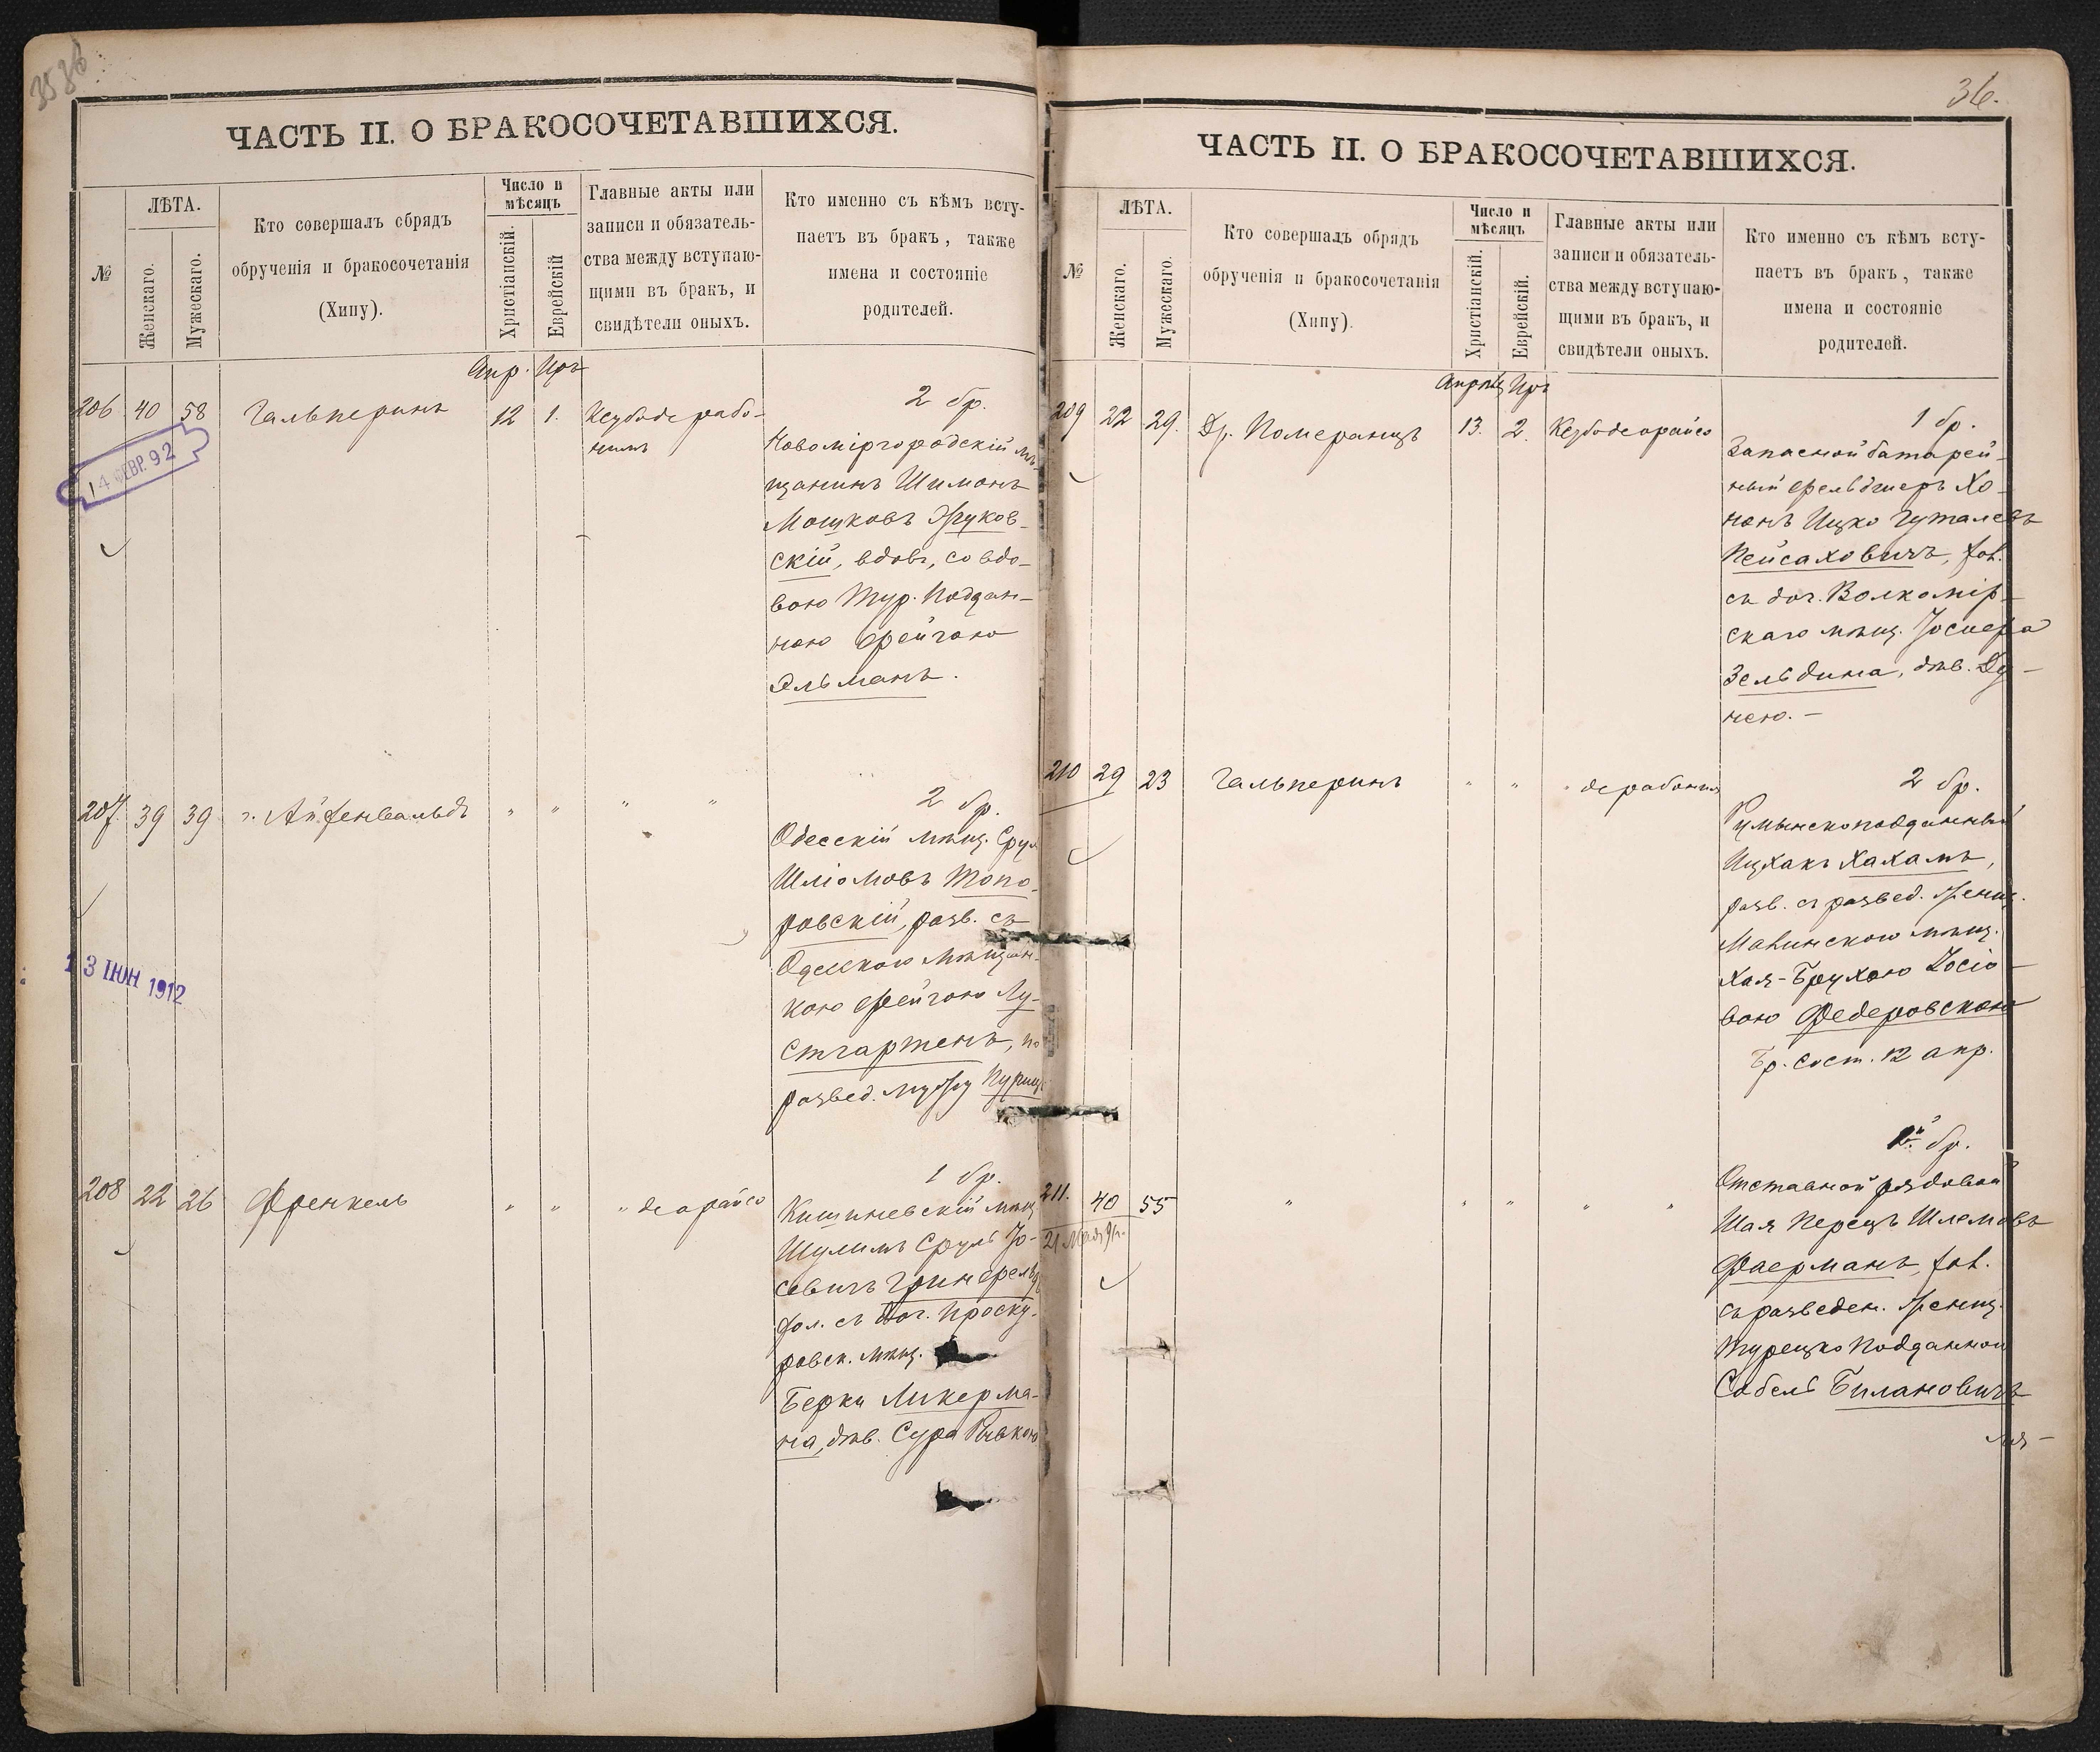 ЧАСТЬ II. О БРАКОСОЧЕТАВШИХСЯ.
№
ЛѢТА.
Женскаго.
Мужескаго.
Кто совершалъ обрядъ
обрученія и бракосочетанія
(Хипу).
Число и
мѣсяцъ
Христіанскій.
Еврейскій
Главные акты или
записи и обязатель-
ства между вступаю-
щими въ бракъ, и
свидѣтели оныхъ.
Кто именно съ кѣмъ всту-
паетъ въ бракъ, также
имена и состояніе
родителей.
Апр. Iіръ
206 40 58 Гальперинъ 12 1. Ксубъ де рабо-
нимъ
14 ФЕВР. 92
2 бр.
Новоміргородскій мѣ-
щанинъ Шимонъ
Мошковъ Жуков-
скій, вдов., со вдо-
вою Тур. Поддан-
ною Фейгою
Эльманъ.
207. 39 39 г. Айзенвальдъ " " " "
13 ІЮН 1912
2 бр.
Одесскій мѣщ. Срул
Шліомовъ Топо-
ровскій, разв. съ
Одесскою мѣщан-
кою Фейгою Лу-
стгартенъ, по
развед. мужу
208 22 26 Френкель " " " де орайсо
1 бр.
Кишиневскій мѣщ.
Шулимъ Сруль Іо-
севичъ Гринфельдъ
хол. съ доч. Проску-
ровск. мѣщ.
Берки Ликерма-
на, дѣв. Сура Ривкою
36.
ЧАСТЬ II. О БРАКОСОЧЕТАВШИХСЯ.
№
ЛѢТА.
Женскаго.
Мужескаго.
Кто совершалъ обрядъ
обрученія и бракосочетанія
(Хипу).
Число и
мѣсяцъ
Христіанскій.
Еврейскій.
Главные акты или
записи и обязатель-
ства между вступаю-
щими въ бракъ, и
свидѣтели оныхъ.
Кто именно съ кѣмъ всту-
паетъ въ бракъ, также
имена и состояніе
родителей.
Апрѣль Iіръ
209 22 29. Др. Померанцъ 13. 2. Кезбо де орайсо
1 бр.
Запасной батарей-
ный фельдшеръ Хо-
нонъ Ицко
Пейсаховичъ, хол.
съ доч. Волкомір-
скаго мѣщ. Іосифа
Зельдина, дѣв. Ду-
нею. —
210 29 23 Гальперинъ " " " де рабонимъ
2 бр.
Румынскоподданный
Ицхакъ Хахамъ,
разв. съ развед. женщ.
мѣщ.
Хая-Брухою Іосіо-
вою Федеровскою
Бр. сост. 12 апр.
211. 40 55 " " " " "
бр.
Отставной рядовой
Шая Перецъ Шлемовъ
Фаерманъ, хол.
съ разведен. женщ.
Турецко Подданной
Собель Билановичъ